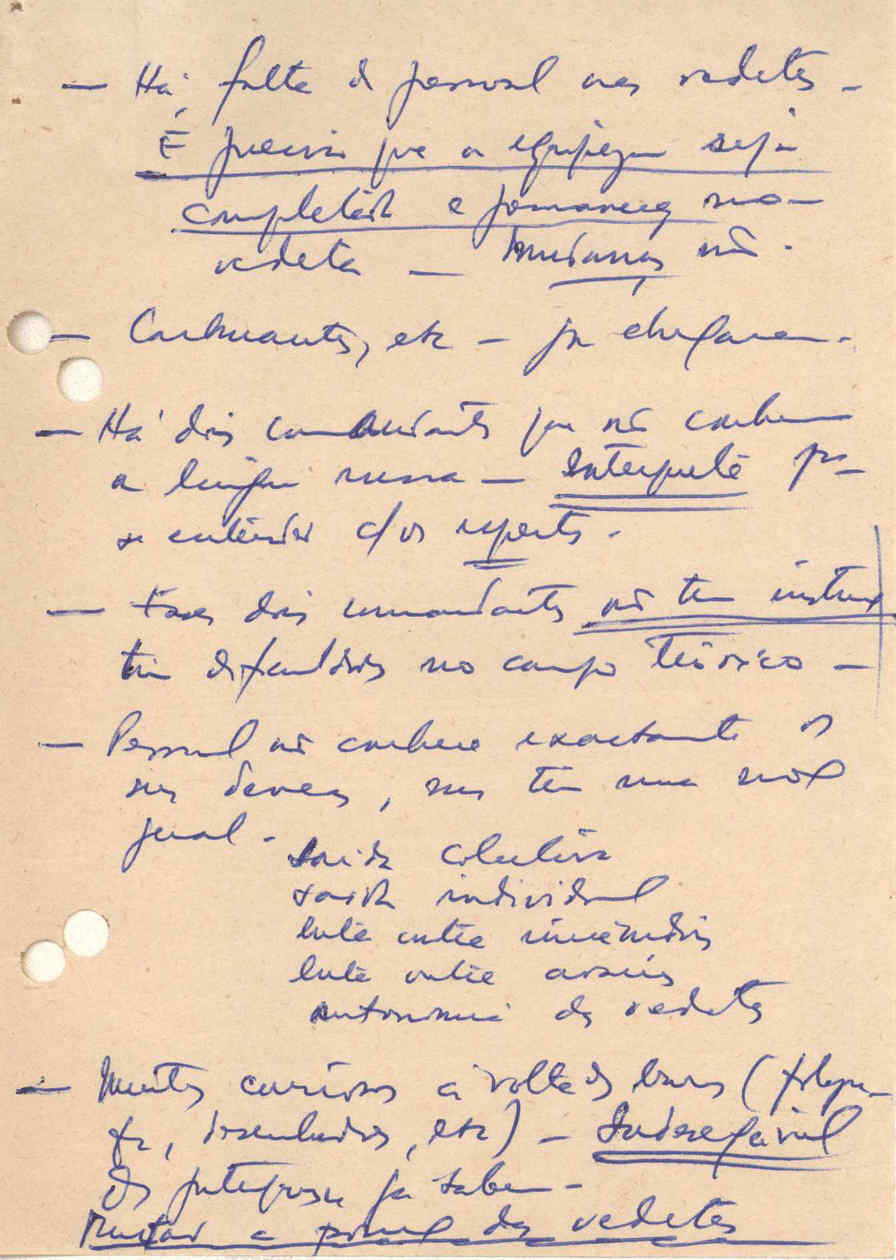 — Há falta de pessoal nas vedetas —
É preciso que a equipagem seja
completada e permaneça na
vedeta — Mudanças não.
— Carburantes, etc — já chegaram.
— Há dois comandantes que não conhecem
a língua russa — Intérprete pa-
se entender c/ os experts.
— Esses dois comandantes não tem
tem dificuldades no campo teórico —
— Pessoal não conhece exactamente os
seus deveres, mas tem uma
geral.
saída colectiva
saída individual
luta contra incêndios
luta contra
autonomia das vedetas
— Muitos curiosos à volta dos barcos (fotogra-
fia, desenhados, etc) — Indesejável
Os portugueses já sabem —
das vedetas